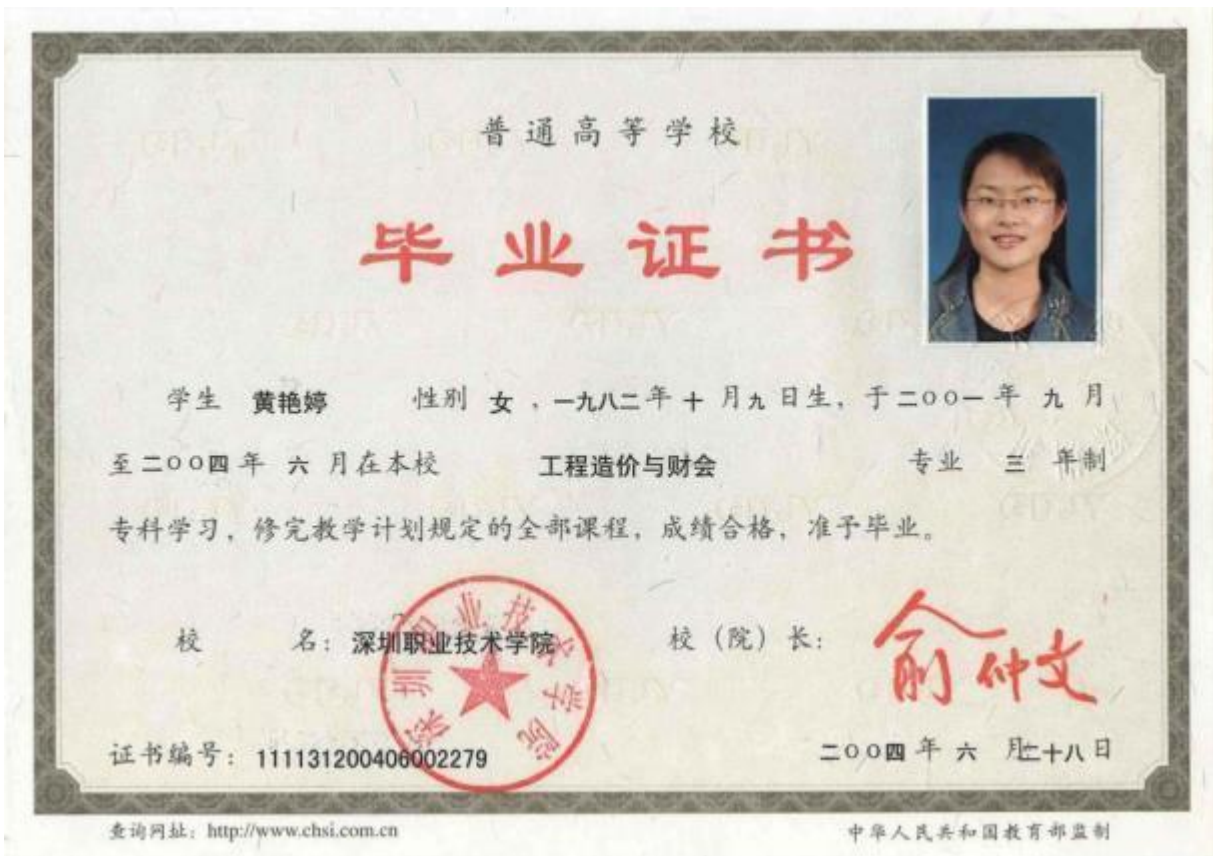 普通高等学校
毕业证书
学生 黄艳婷 性别 女，一九八二年十月九日生，于二〇〇一年 九 月
至二〇〇四年 六 月在本校 工程造价与财会 专业 三 年制
专科学习，修完教学计划规定的全部课程，成绩合格，准予毕业。
校 名：深圳职业技术学院 校（院）长：
俞仲文
深圳职业技术学院
证书编号：111131200406002279 二〇〇四年 六 月二十八日
查询网址：http://www.chsi.com.cn 中华人民共和国教育部监制